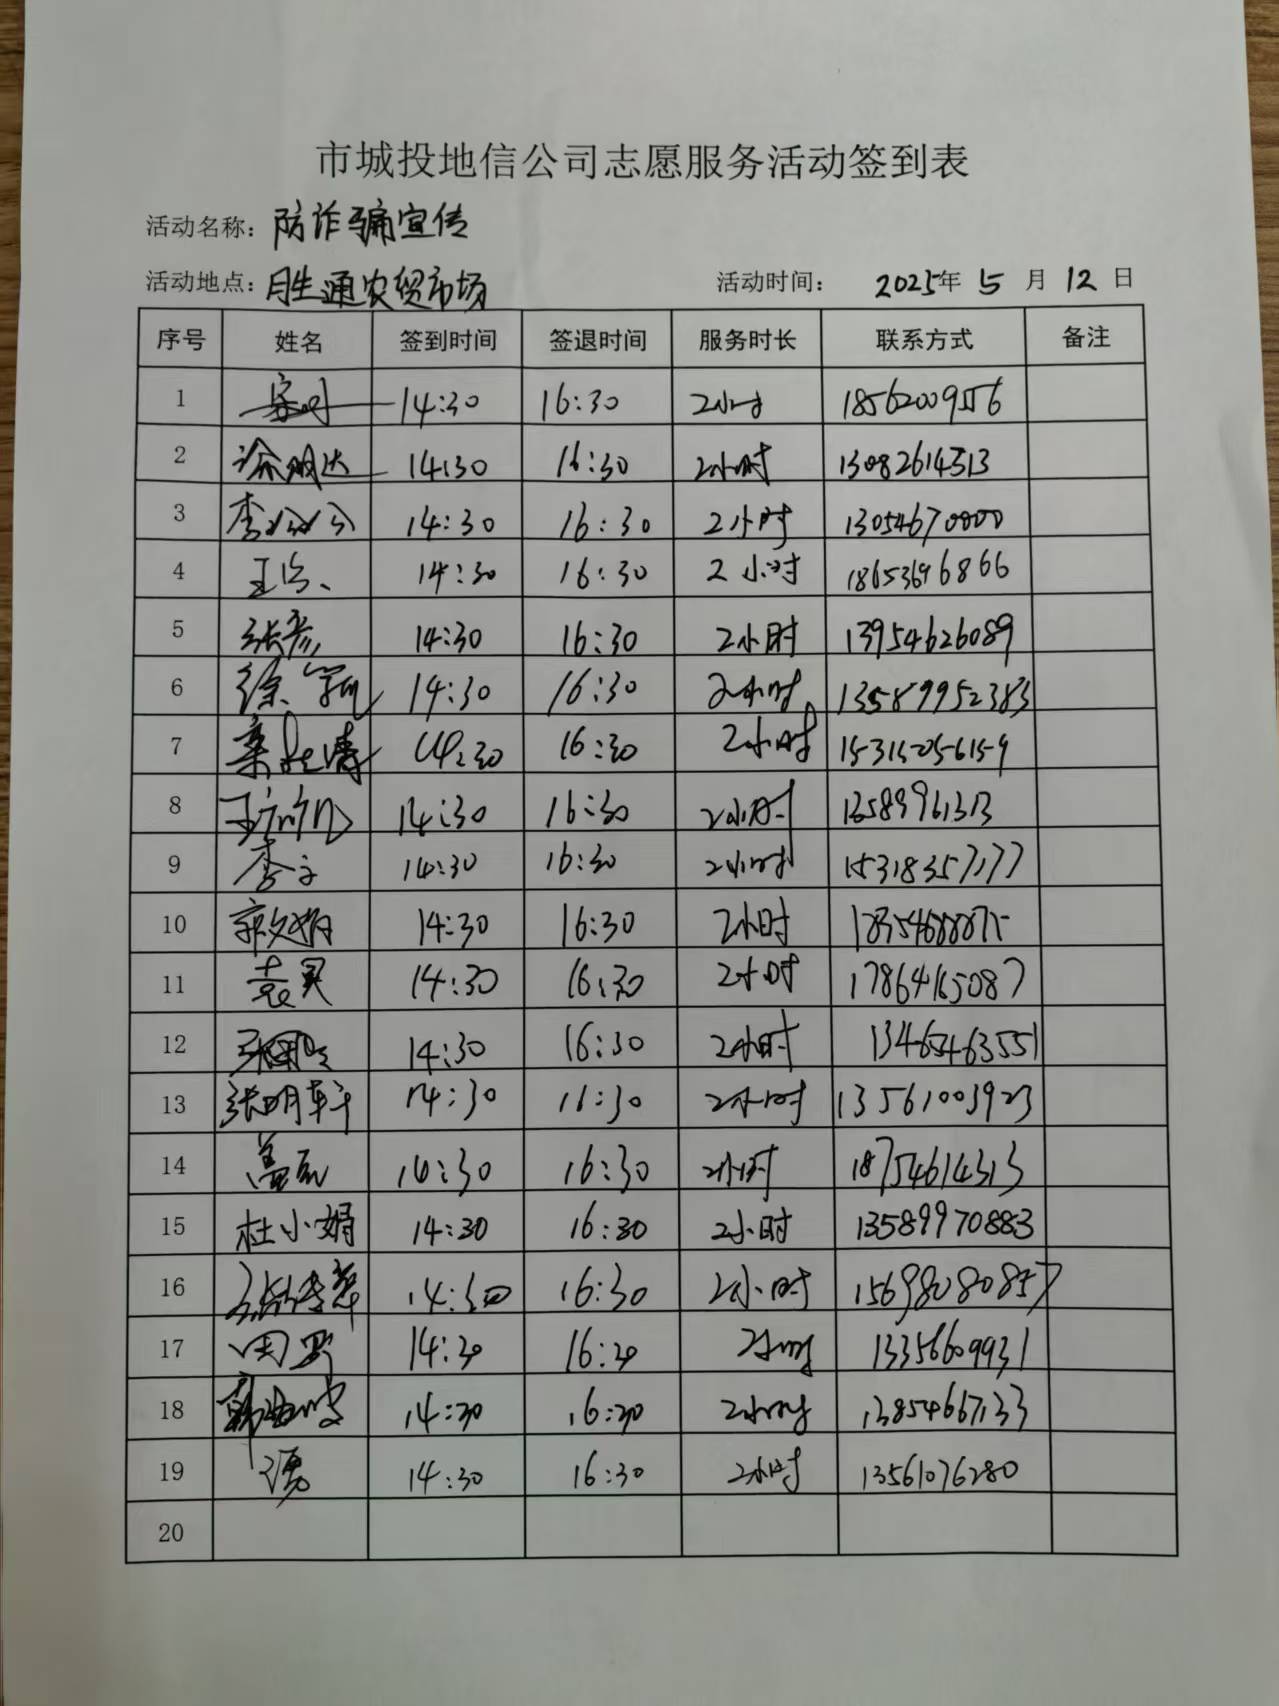 市城投地信公司志愿服务活动签到表
活动名称：防诈骗宣传
活动地点：胜通农贸市场 活动时间： 2025年 5 月 12 日
序号 姓名 签到时间 签退时间 服务时长 联系方式 备注
1 14:30 16:30 2小时 18562009556
2 14:30 16:30 2小时 13082614313
3 14:30 16:30 2小时 13054670000
4 14:30 16:30 2小时 18653696866
5 张彦 14:30 16:30 2小时 13954626089
6 14:30 16:30 2小时 13589952383
7 14:30 16:30 2小时 15315056159
8 14:30 16:30 2小时 13589961313
9 14:30 16:30 2小时 15318357177
10 14:30 16:30 2小时
11 袁昊 14:30 16:30 2小时 17864165087
12 14:30 16:30 2小时 13465463551
13 张明轩 14:30 16:30 2小时 13561003923
14 14:30 16:30 2小时 18754614313
15 杜小娟 14:30 16:30 2小时 13589970883
16 14:30 16:30 2小时 15698080857
17 14:30 16:30 2小时 13356609931
18 14:30 16:30 2小时 13854667133
19 14:30 16:30 2小时 13561076280
20